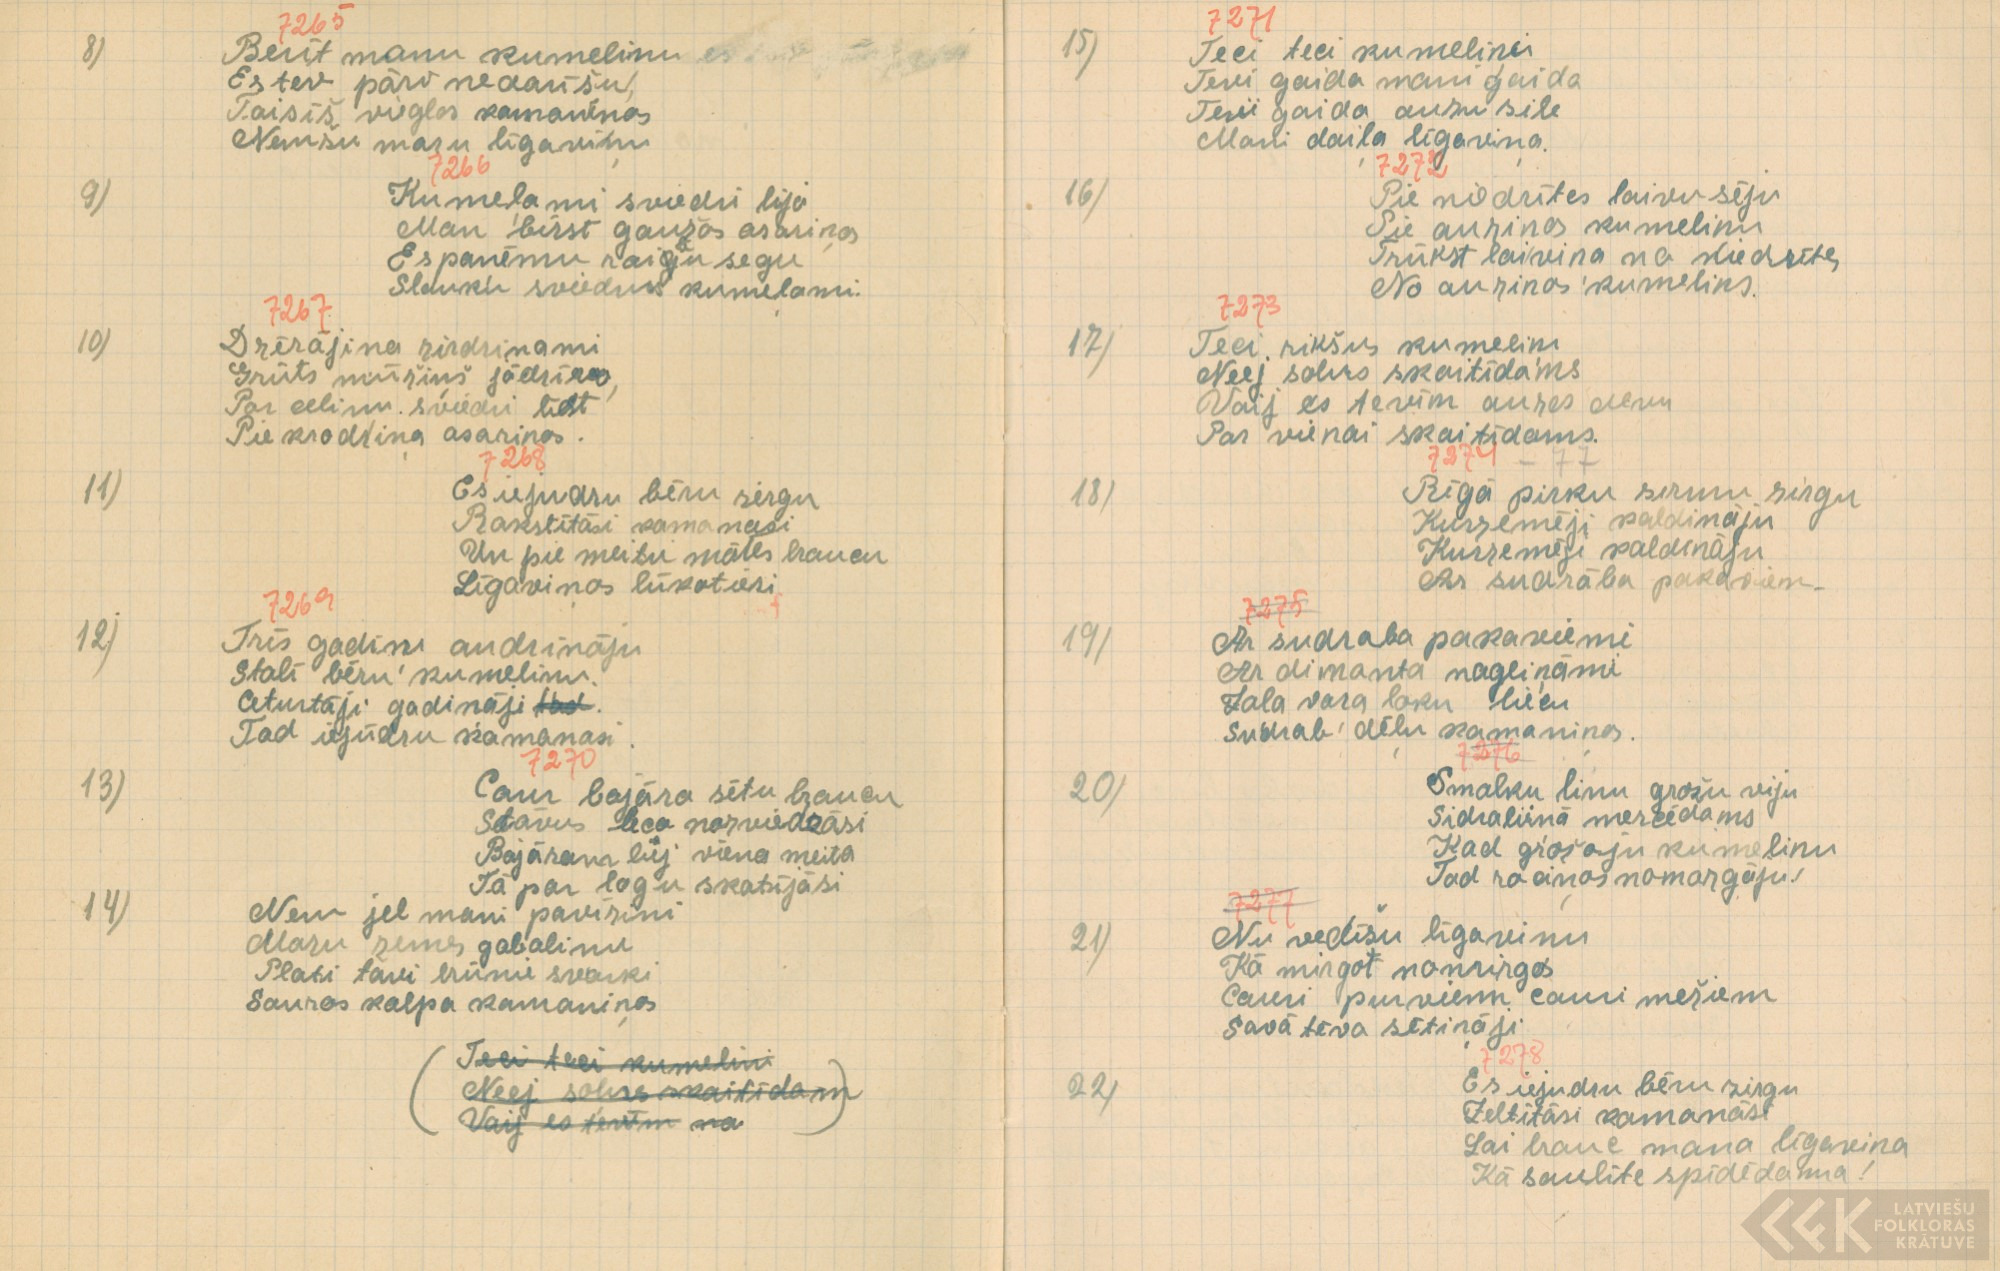 7265
8) Berīt manu kumeliņu
Es tev pāri nedarīšu,
Taisīš vieglas kamaniņas
Ņemšu mazu līgaviņu
7266
9) Kumeļami sviedri lija
Man birst gaužas asariņas
Es panēmu raiģu segu
Slauku sviedrus kumeļami.
7267
10) Dzērājiņa zirdziņami
Grūts mūžiņš jādzīvo,
Par celiņu sviedri līst
Pie krodziņa asariņas.
7268
11) Es iejudzu bēru zirgu
Rakstītāsi kamanasi
Un pie meitu mātes braucu
Līgaviņas lūkotiesi
7269
12) Trīs gadiņi audzināju
Stalī bēru kumeliņu.
Ceturtāji gadiņāji tad.
Tad iejūdzu kamanasi.
7270
13) Caur bajāra sētu braucu
Stāvus leca nozviedzāsi
Bajāram bij viena meita
Tā par logu skatijāsi
14) Ņem jel mani pavīziņi
Mazu zemes gabaliņu
Plati tavi brūnie svarki
Šauras kalpa kamaniņas
(Teci teci kumeliņi
Neej soļus skaitīdam
Vaij es tevīm na)
7271
15) Teci teci kumeliņi
Tevi gaida mani gaida
Tevi gaida auzu sile
Mani daiļa līgaviņa.
7272
16) Pie niedrītes laivu sēju
Pie auziņas kumeliņu
Trūkst laiviņa na niedrītes
No auziņas kumeliņš.
7273
17) Teci rikšus kumeliņi
Neej soļus skaitīdams
Vaij es tevīm auzas devu
Par vienai skaitīdams.
7274 - 77
18) Rīgā pirku sirmu zirgu
Kurzemēji kaldināju
Kurzemēji kaldināju
Ar sudrāba pakaviem
7275
19) Ar sudraba pakaviemi
Ar dimanta nagliņāmi
Zaļa vara loku liecu
Sudrab' dēļu kamaniņas.
7276
20) Smalku linu grožu viju
Sidrabiņā mērcēdams
Kad grožoju kumeliņu
Tad rociņas nomargāju!
7277
21) Nu vedīšu līgaviņu
Kā mirgot nomirgos
Cauri purviem cauri mežiem
Savā tēva sētiņāji
7278
22) Es iejudzu bēru zirgu
Zeltītāsi kamanāsi
Lai brauc mana līgaviņa
Kā saulīte spīdēdama!
LATVIEŠU
FOLKLORAS
KRĀTUVE